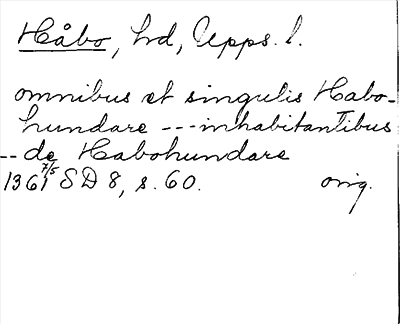 Håbo, hd, Upps. l.
omnibus et singulis Habo-
hundare --- inhabitantibus
-- de Habohundare
1361 7/5 SD 8, s. 60. orig.